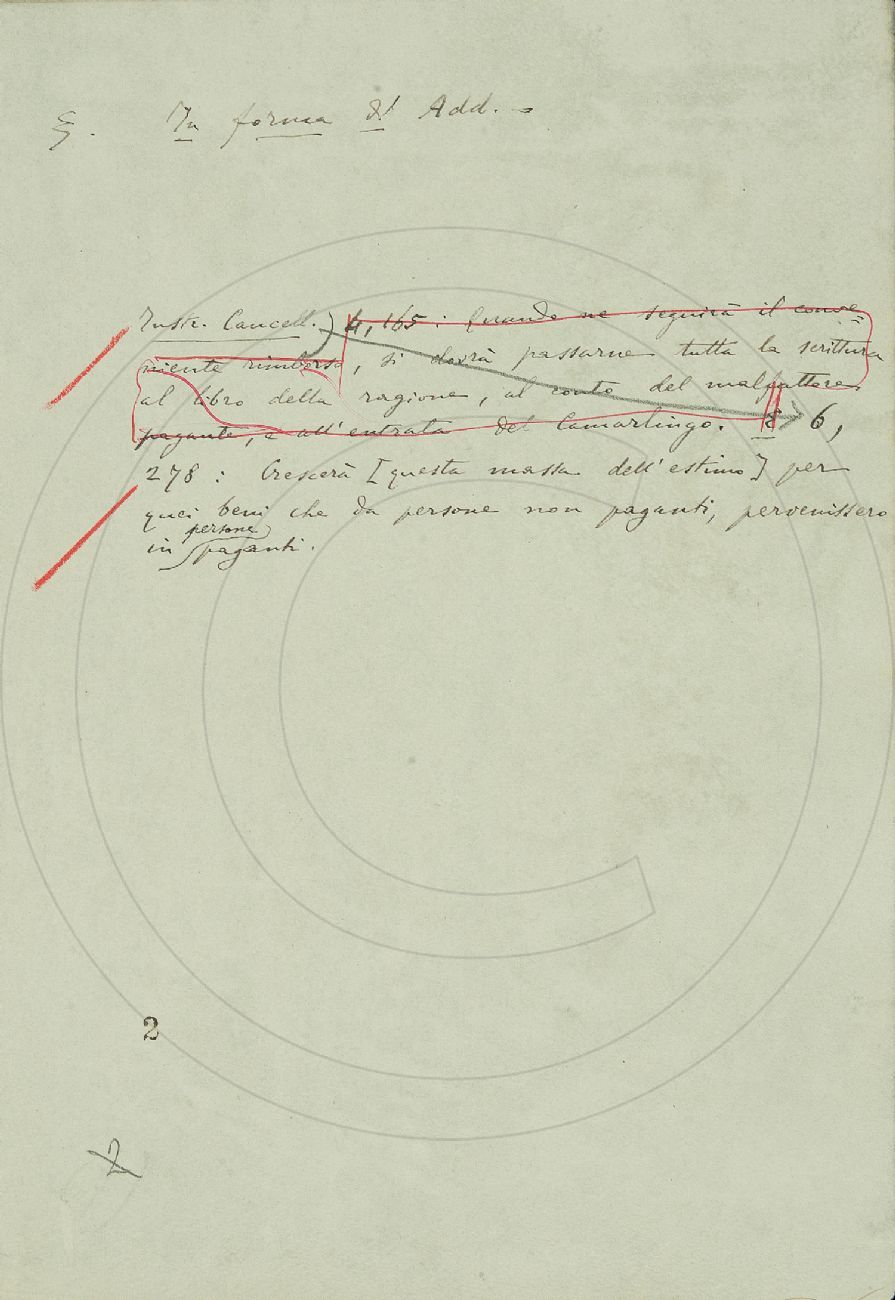 §. In forma d'Add. -
Instr. Cancell.) 4, 165: Quando ne seguirà il conve=
niente rimborso, si dovrà passarne tutta la scrittura
al libro della ragione, al conto del malfattore
pagante, e all'entrata del Camarlingo. E 6,
278: Crescerà [questa massa dell'estimo] per
quei beni che da persone non paganti, pervenissero
persone
in paganti.
2
2